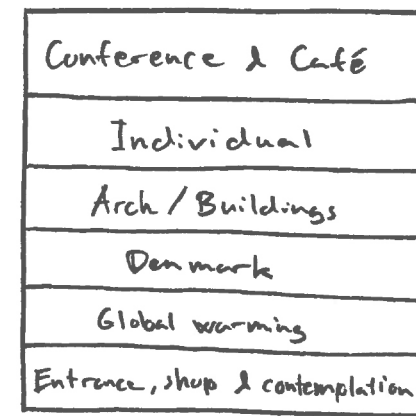 Conference & Café
Individual
Arch / Buildings
Denmark
Global warming
Entrance, shop & contemplation